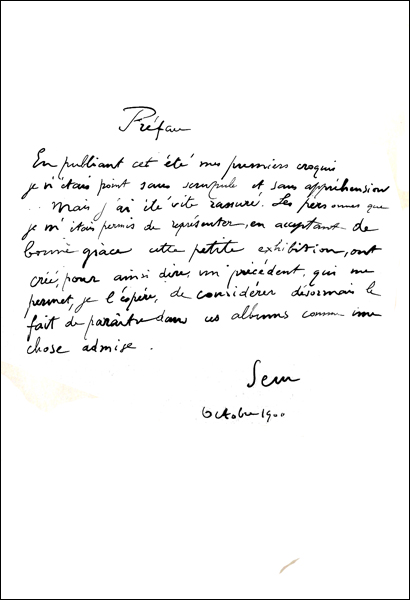 Préface
En publiant cet été mes premiers croquis
je n'étais point sans scrupule et sans appréhension
.. Mais j'ai été vite rassuré. Les personnes que
je m'étais permis de représenter, en acceptant de
bonne grâce cette petite exhibition, ont
créé, pour ainsi dire, un précédent, qui me
permet, je l'espère, de considérer désormais le
fait de paraître dans ces albums comme une
chose admise.
Sem
Octobre 1900